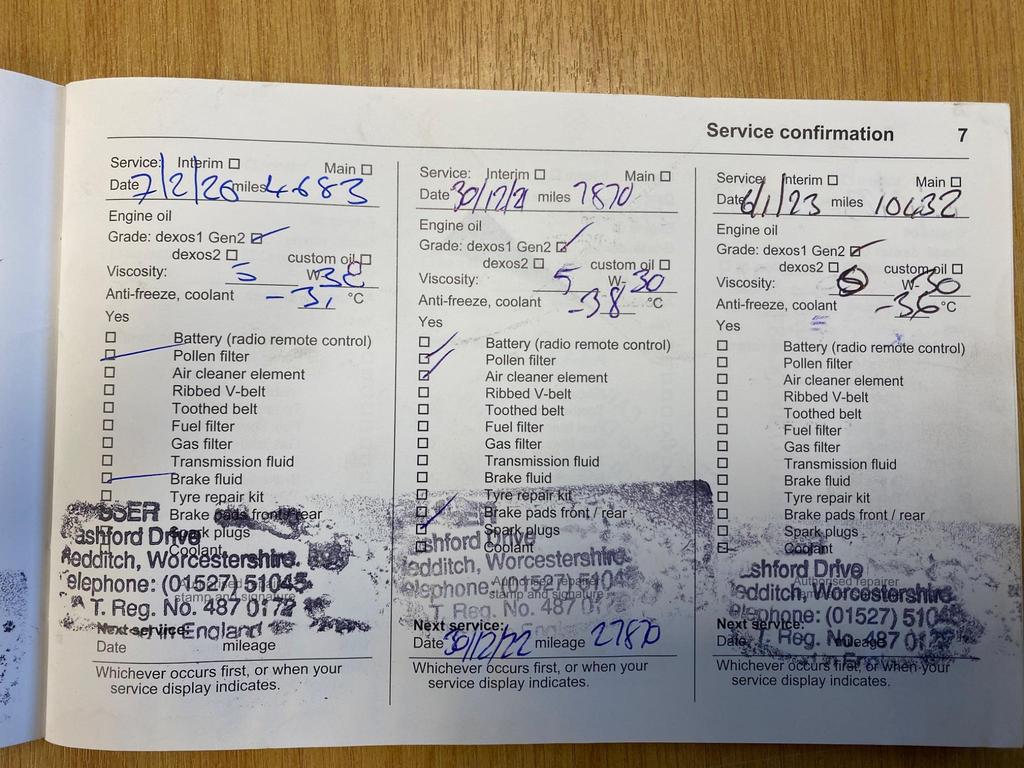 Service confirmation 7
Service: Interim Main
Date 7/2/20 miles 4683
Engine oil
Grade: dexos1 Gen2
dexos2 custom oil
Viscosity: 5 W-30
Anti-freeze, coolant °C
Yes
Battery (radio remote control)
Pollen filter
Air cleaner element
Ribbed V-belt
Toothed belt
Fuel filter
Gas filter
Transmission fluid
Brake fluid
Tyre repair kit
Brake pads front / rear
Spark plugs
Coolant
ashford Drive
edditch, Worcestershire.
elephone: (01527) 51045
T. Reg. No. 487 0172
stamp and signature
England
Next service:
Date mileage
Whichever occurs first, or when your
service display indicates.
Service: Interim Main
Date 30/12/21 miles 7870
Engine oil
Grade: dexos1 Gen2
dexos2 custom oil
Viscosity: 5 W-30
Anti-freeze, coolant -38 °C
Yes
Battery (radio remote control)
Pollen filter
Air cleaner element
Ribbed V-belt
Toothed belt
Fuel filter
Gas filter
Transmission fluid
Brake fluid
Tyre repair kit
Brake pads front / rear
Spark plugs
Coolant
shford Drive
edditch, Worcestershire
Authorised repairer
stamp and signature
T. Reg. No. 487 01
Next service:
Date 30/12/22 mileage 27870
Whichever occurs first, or when your
service display indicates.
Service: Interim Main
Date 6/1/23 miles 10432
Engine oil
Grade: dexos1 Gen2
dexos2 custom oil
Viscosity: W-30
Anti-freeze, coolant -36 °C
Yes
Battery (radio remote control)
Pollen filter
Air cleaner element
Ribbed V-belt
Toothed belt
Fuel filter
Gas filter
Transmission fluid
Brake fluid
Tyre repair kit
Brake pads front / rear
Spark plugs
Coolant
shford Drive
Authorised repairer
edditch, Worcestershire
lephone: (01527) 5104
Next service:
Date mileage
T. Reg. No. 487 01
Whichever occurs first, or when your
service display indicates.